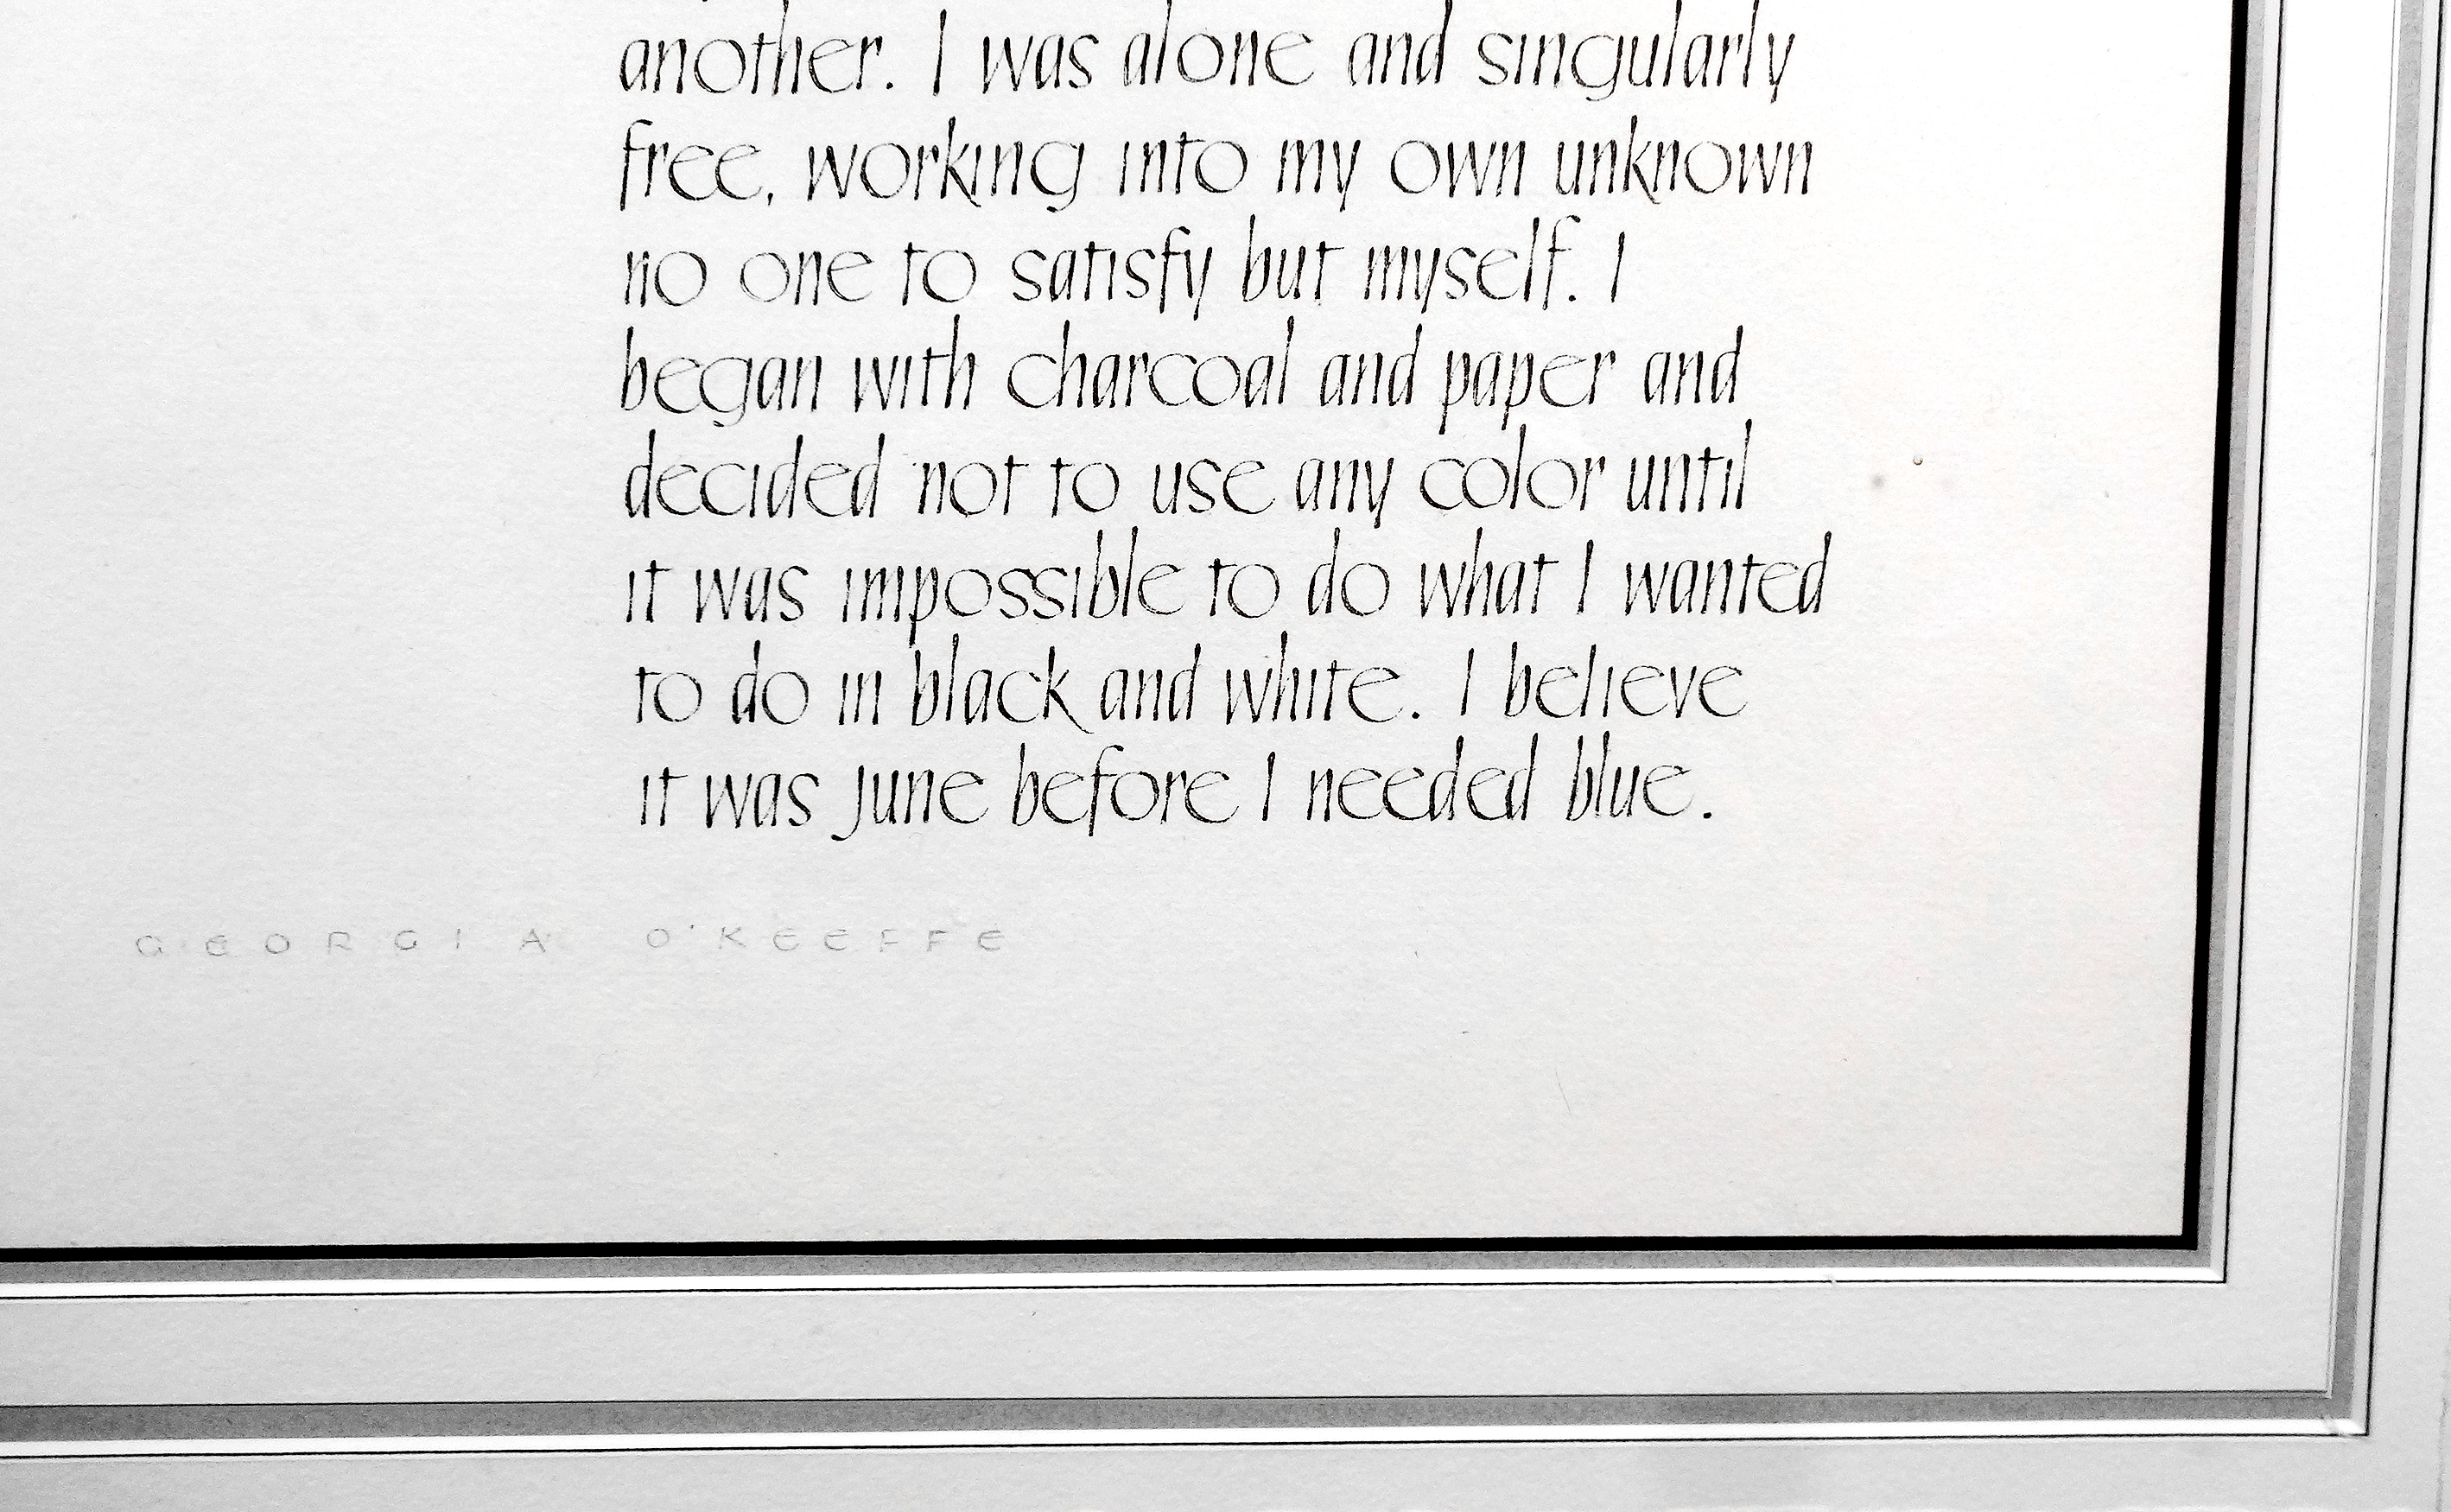 another. I was alone and singularly
free, working into my own unknown
no one to satisfy but myself. I
began with charcoal and paper and
decided not to use any color until
it was impossible to do what I wanted
to do in black and white. I believe
it was June before I needed blue.
GEORGIA O'KEEFFE